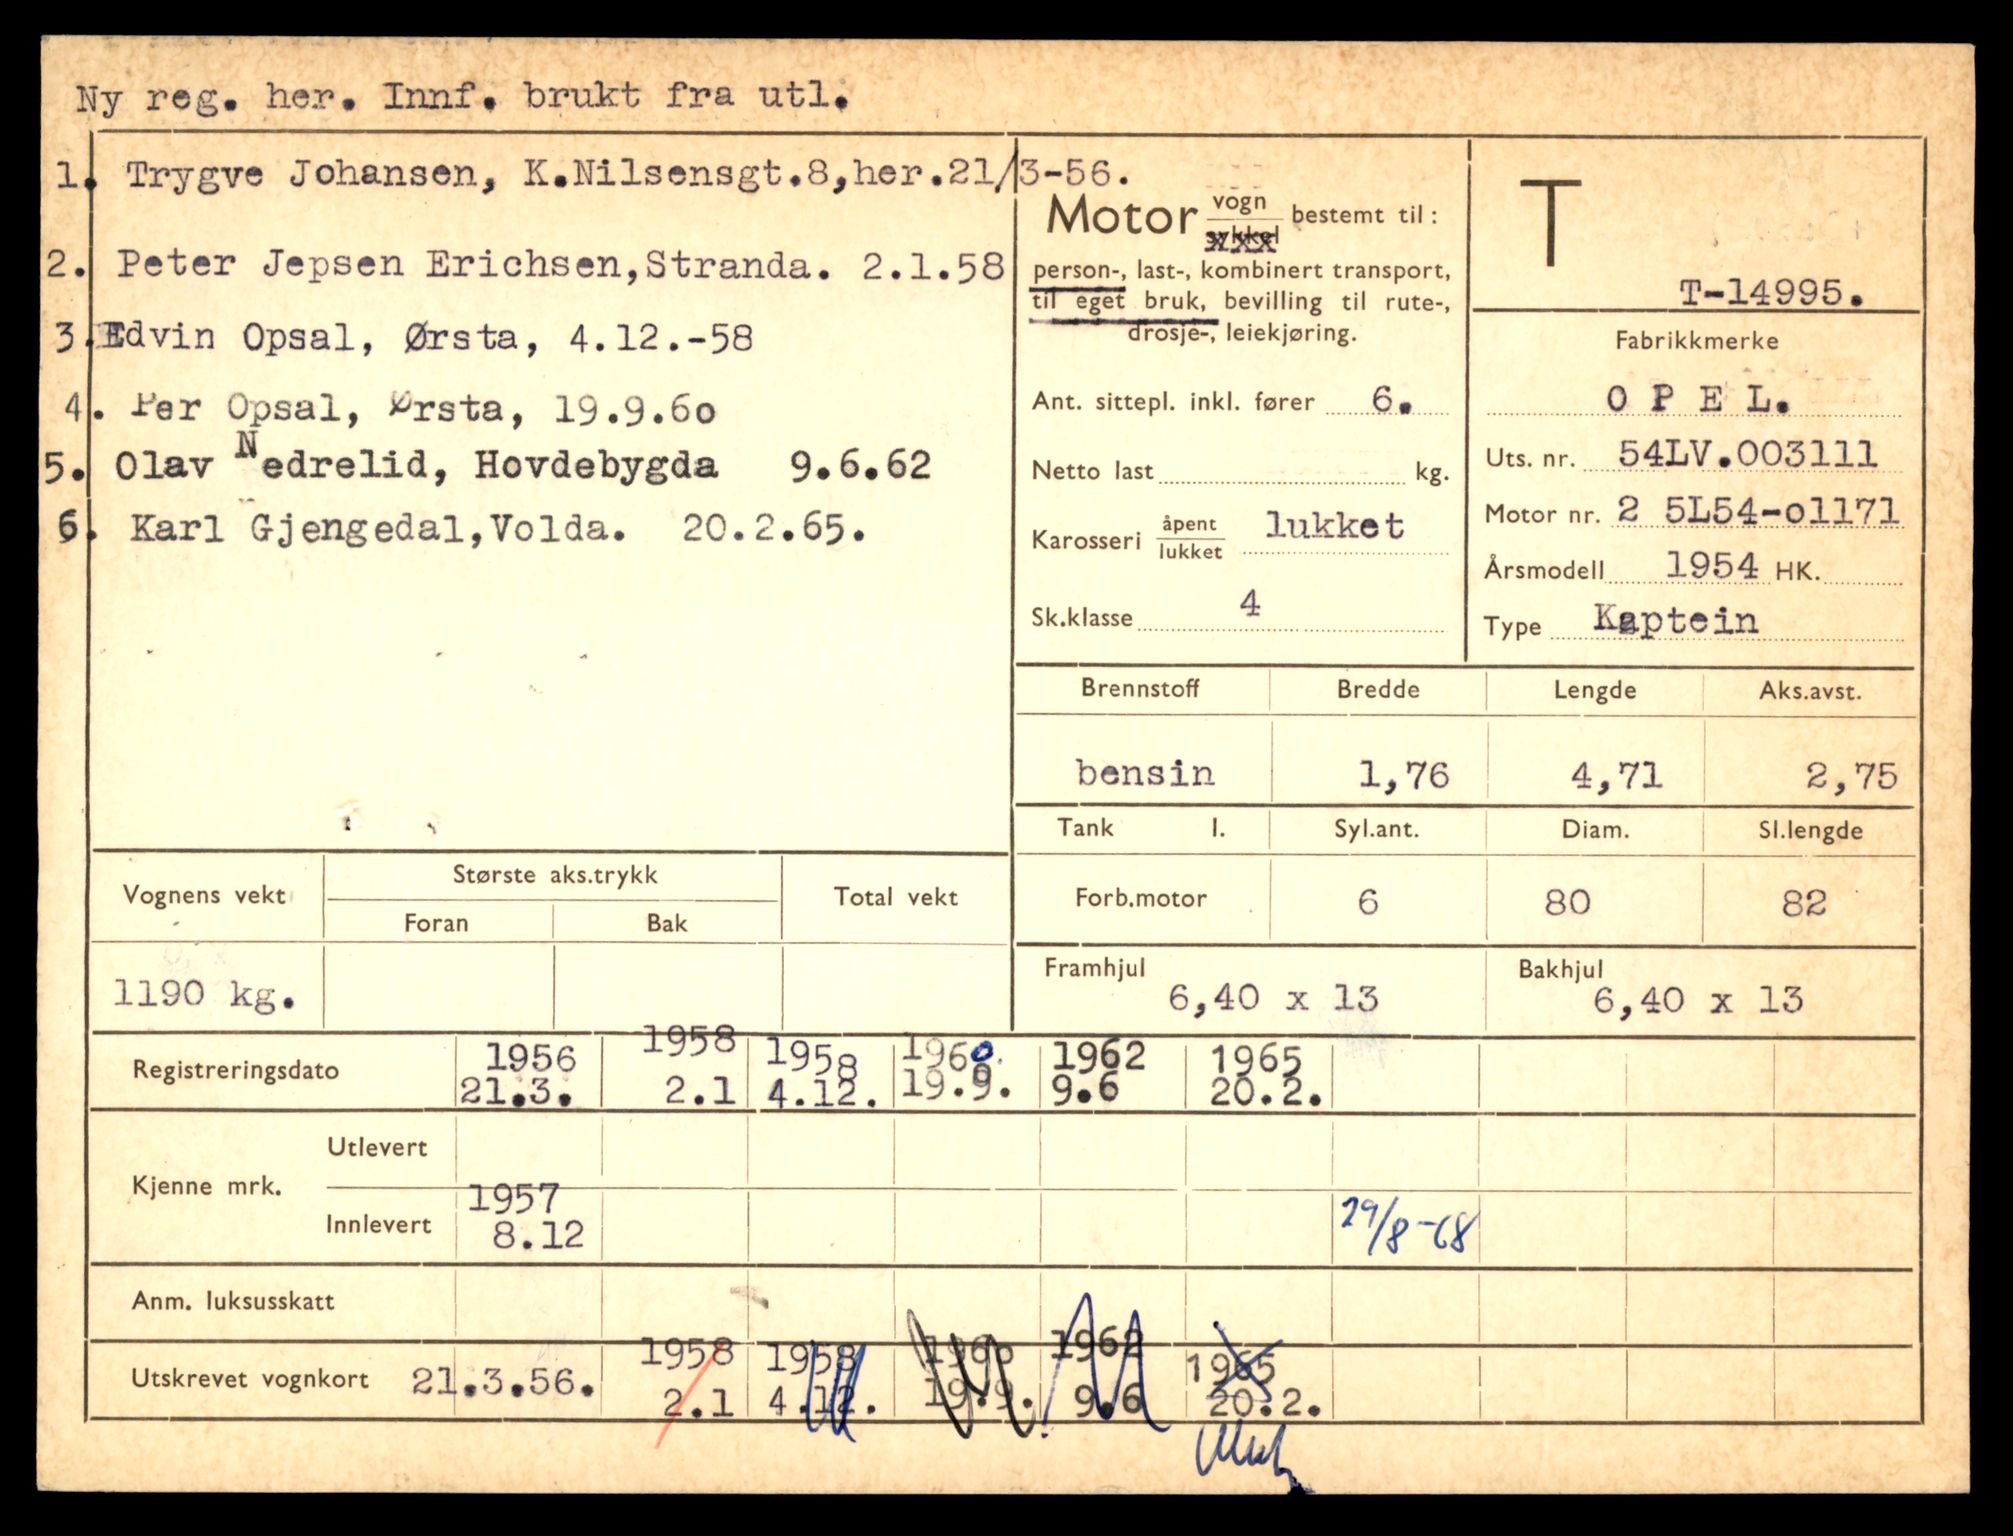 Ny reg. her. Innf. brukt fra utl.
1. Trygve Johansen, K.Nilsensgt.8,her.21/3-56.
2. Peter Jepsen Erichsen,Stranda. 2.1.58
3. Edvin Opsal, Ørsta, 4.12.-58
4. Per Opsal, Ørsta, 19.9.60
5. Olav Nedrelid, Hovdebygda 9.6.62
6. Karl Gjengedal,Volda. 20.2.65.
Motor vogn sykkel bestemt til:
person-, last-, kombinert transport,
til eget bruk, bevilling til rute-,
drosje-, leiekjøring.
Ant. sittepl. inkl. fører 6.
Netto last kg.
Karosseri åpent lukket lukket
Sk.klasse 4
T
T-14995.
Fabrikkmerke
O P E L.
Uts. nr. 54LV.003111
Motor nr. 2 5L54-01171
Årsmodell 1954 HK.
Type Kaptein
Brennstoff Bredde Lengde Aks.avst.
bensin 1,76 4,71 2,75
Tank l. Syl.ant. Diam. Sl.lengde
Forb.motor 6 80 82
Framhjul 6,40 x 13 Bakhjul 6,40 x 13
Vognens vekt Største aks.trykk Total vekt
Foran Bak
1190 kg.
Registreringsdato 1956 1958 1958 1960 1962 1965
21.3. 2.1 4.12. 19.9. 9.6 20.2.
Kjenne mrk. Utlevert
Innlevert 1957 8.12 29/8-68
Anm. luksusskatt
Utskrevet vognkort 21.3.56. 1958 1958 1960 1962 1965
2.1 4.12. 19.9. 9.6 20.2.